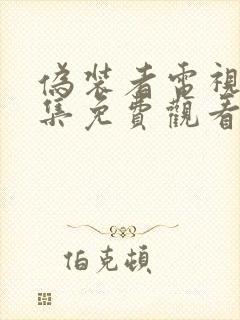 偽裝者電視
集免費觀看
伯克頓